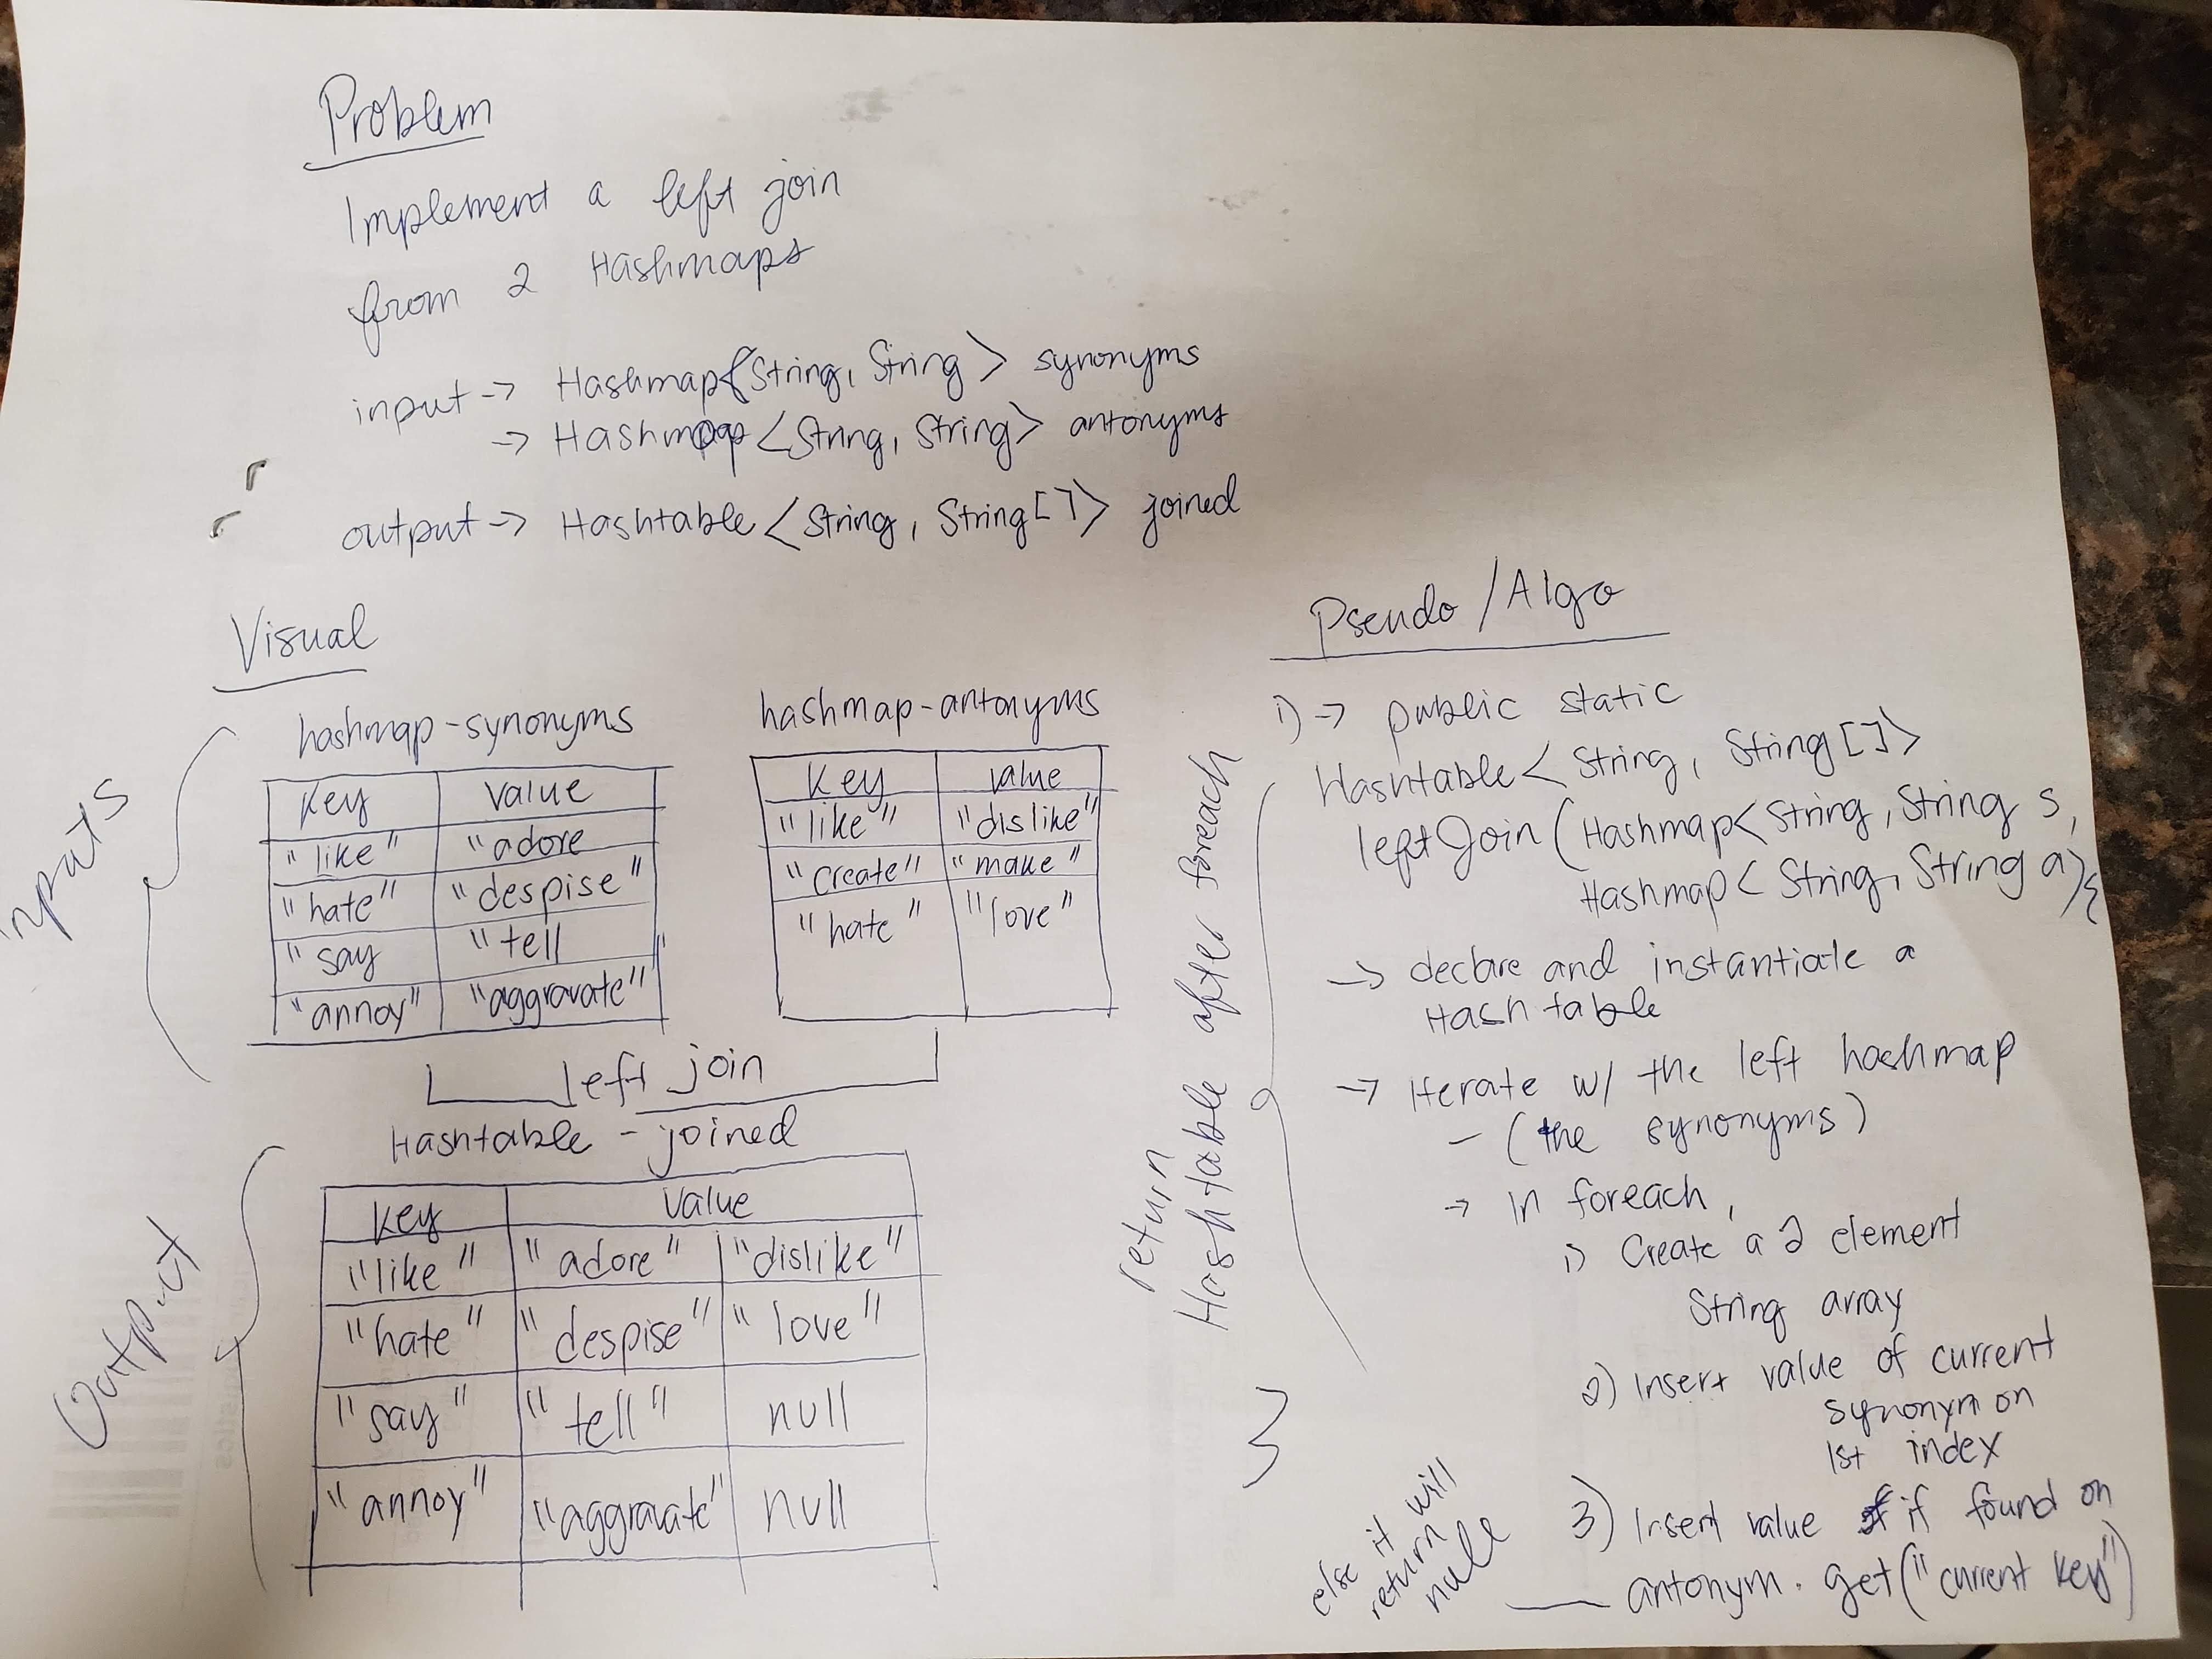 Problem
Implement a left join
from 2 Hashmaps
input -> Hashmap<String, String> synonyms
-> Hashmap<String, String> antonyms
output -> Hashtable<String, String[]> joined
Visual
inputs
hashmap-synonyms
Key Value
"like" "adore
"hate" "despise"
"say "tell
"annoy" "aggravate"
hashmap-antonyms
Key Value
"like" "dislike"
"create" "make"
"hate" "love"
left join
Output
Hashtable - joined
Key Value
"like" "adore" "dislike"
"hate" "despise" "love"
"say" "tell" null
"annoy" "aggravate" null
Pseudo/Algo
1) -> public static
Hashtable<String, String[]>
leftJoin(Hashmap<String, String s,
Hashmap<String, String a){
-> declare and instantiate a
Hash table
-> Iterate w/ the left hashmap
- (the synonyms)
-> In foreach,
1) Create a 2 element
String array
2) Insert value of current
synonym on
1st index
3) Insert value if found on
antonym.get("current key")
else it will
return
null
return
Hashtable after foreach
}